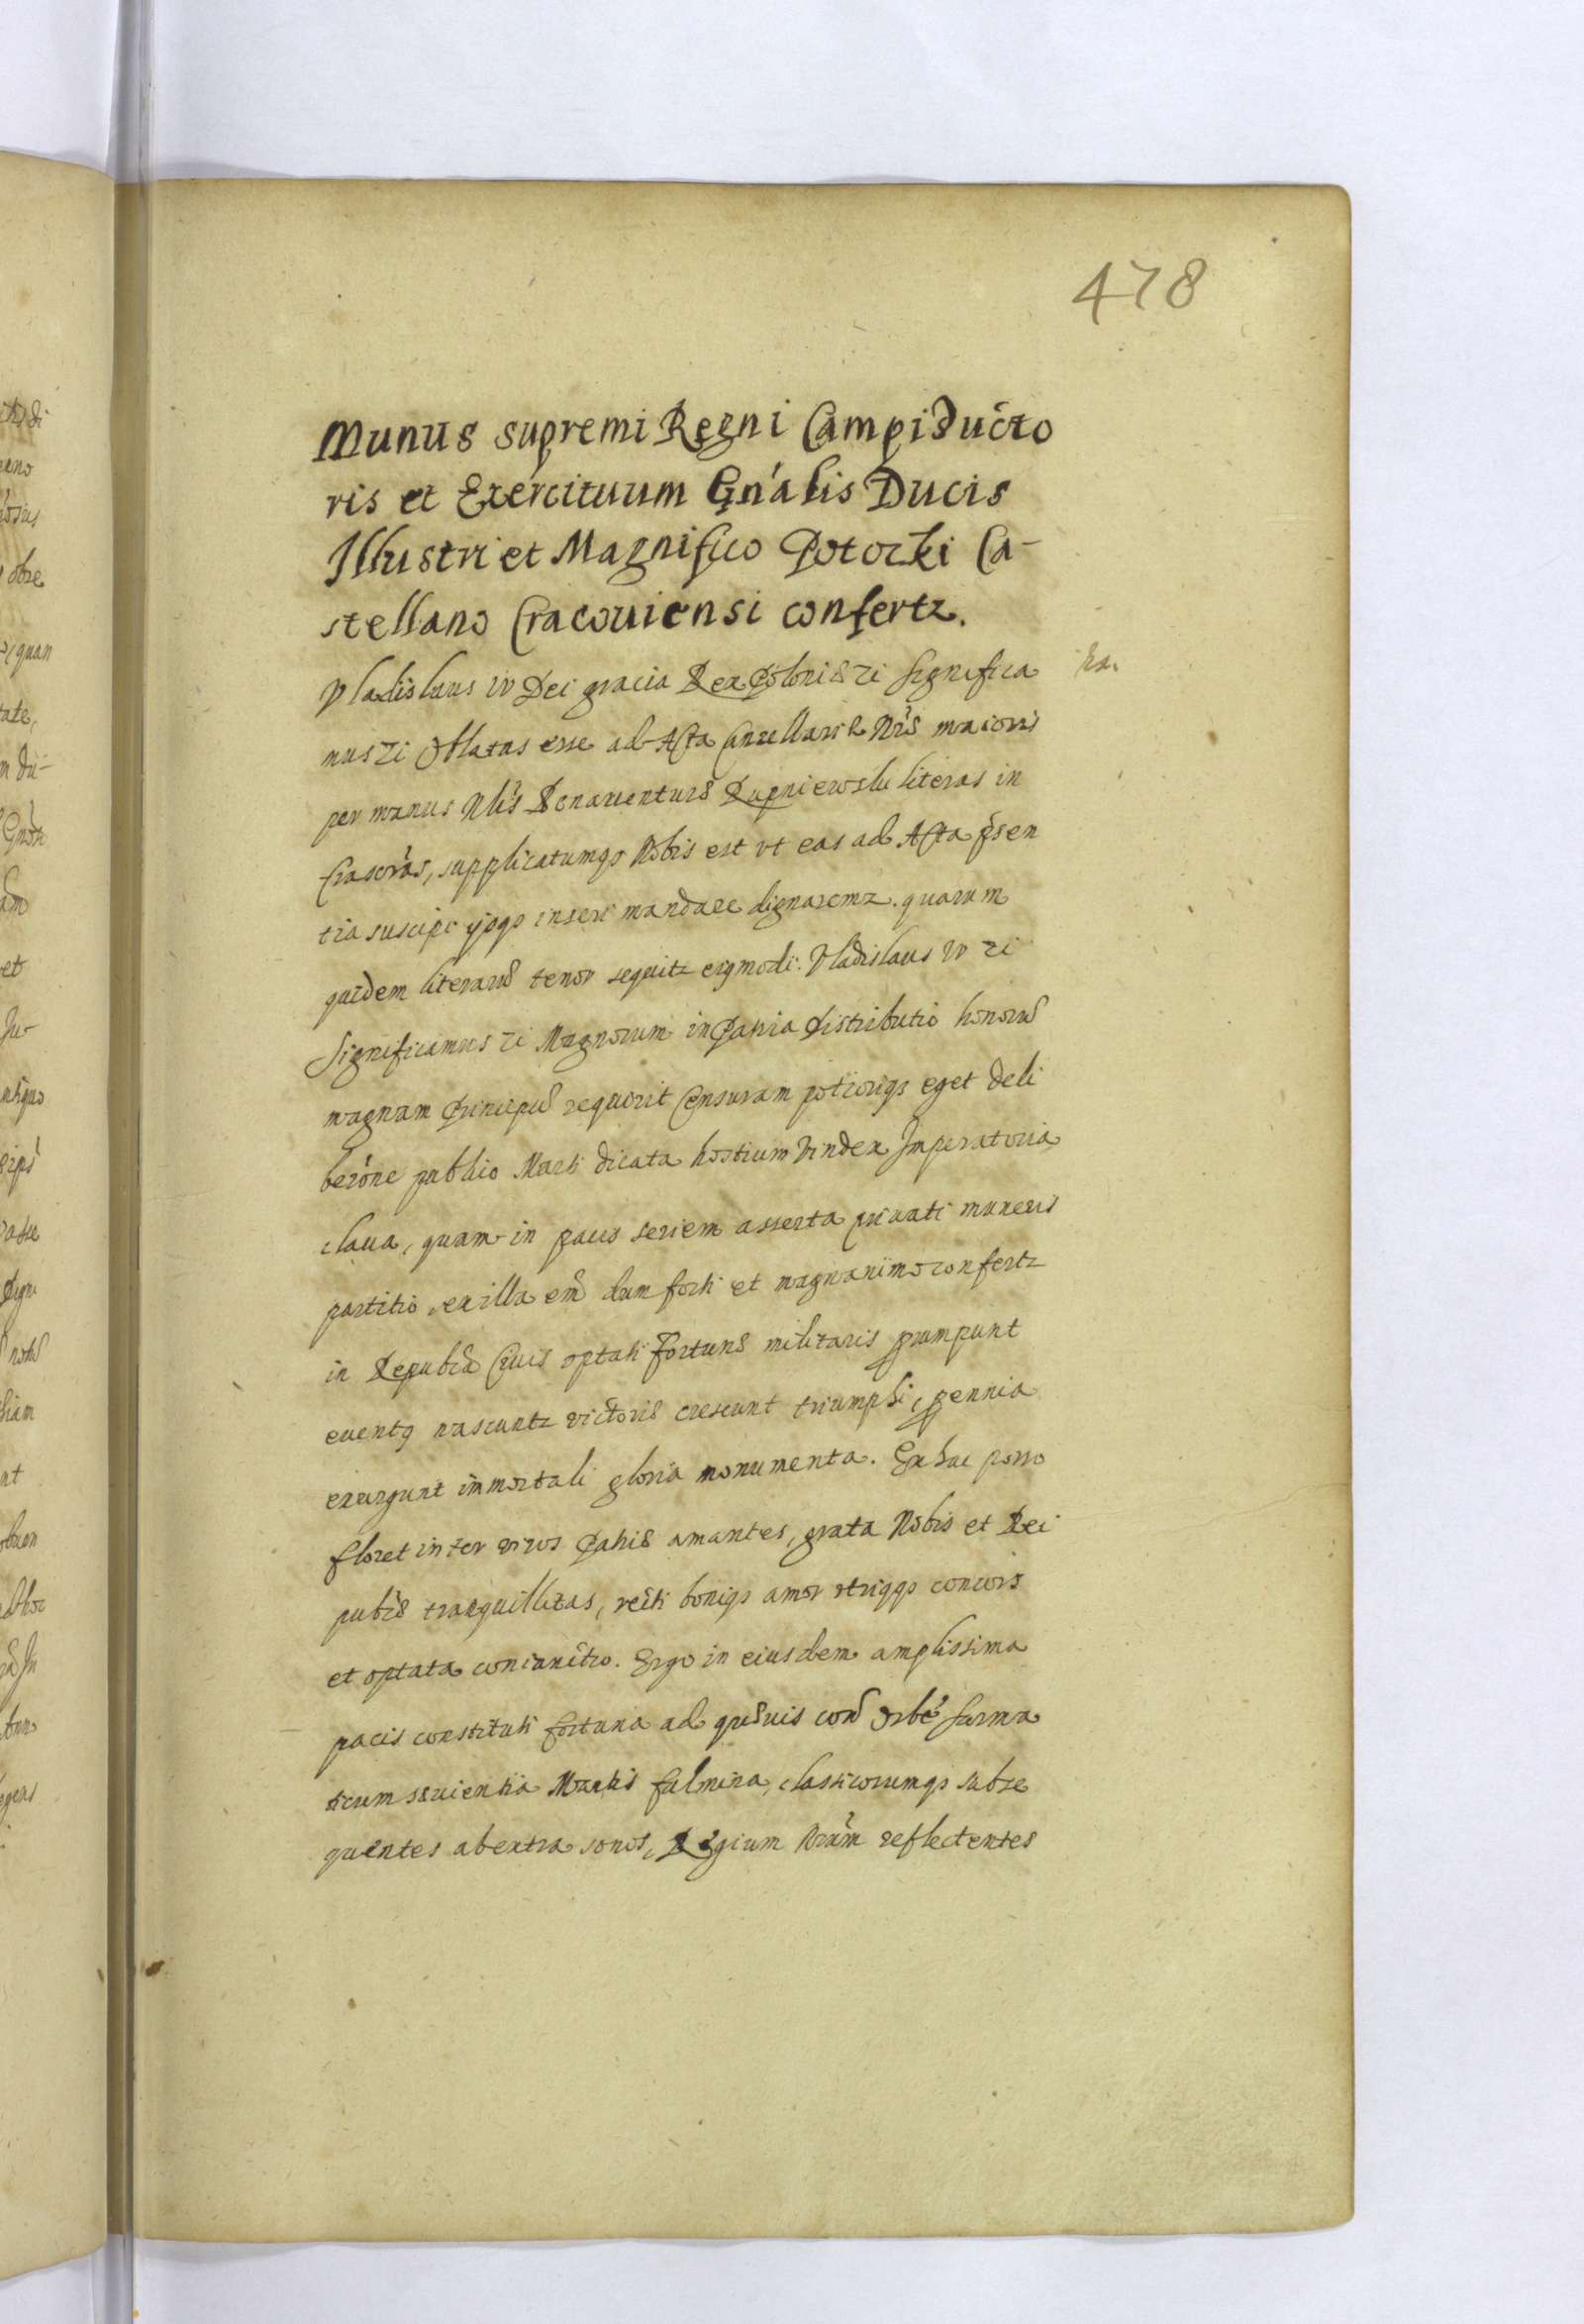 478
Munus supremi Regni Campiducto
ris et Exercituum Gn'alis Ducis
Illustri et Magnifico Potocki Ca-
stellano Cracouiensi confertz.
Vladislaus IV Dei gracia Rex Poloniæ zi significa
mus zi Oblatas esse ad Acta Cancellariæ Nr̃æ maioris
per manus Nlis Bonauenturæ Łupniewski literas in
frascrãs, supplicatumqz Nobis est vt eas ad Acta p̃sen
tia suscipi ijsqz inseri mandare dignaremz. quarum
quidem literarũ tenor sequitz eiusmodi. Vladislaus IV zi
Significamus zi Magnorum in Patria distributio honorũ
magnam Principũ requirit Censuram potioriqz eget deli
berãone publico Marti dicata hostium Vindex Imperatoria
claua, quam in pacis seriem asserta priuati muneris
partitio, ex illa em̃ dum forti et magnanimo confertz
in Republĩca Ciuis optati Fortunæ militaris prumpunt
euentq nascuntz victoriæ crescunt triumphi, pennia
exurgunt immortali gloria monumenta. Ex hac porro
floret inter viros Patriæ amantes, grata Nobis et Rei
publĩcæ tranquillitas, recti boniqz amor vtriqqz concors
et optata coniunctio. Ergo in eiusdem amplissima
pacis constituti fortuna ad quæuis con Orbẽ Sarma
ticum sæuientia Martis fulmina, classicorumqz subse
quentes abextra sonos, Regium Nrũm reflectentes